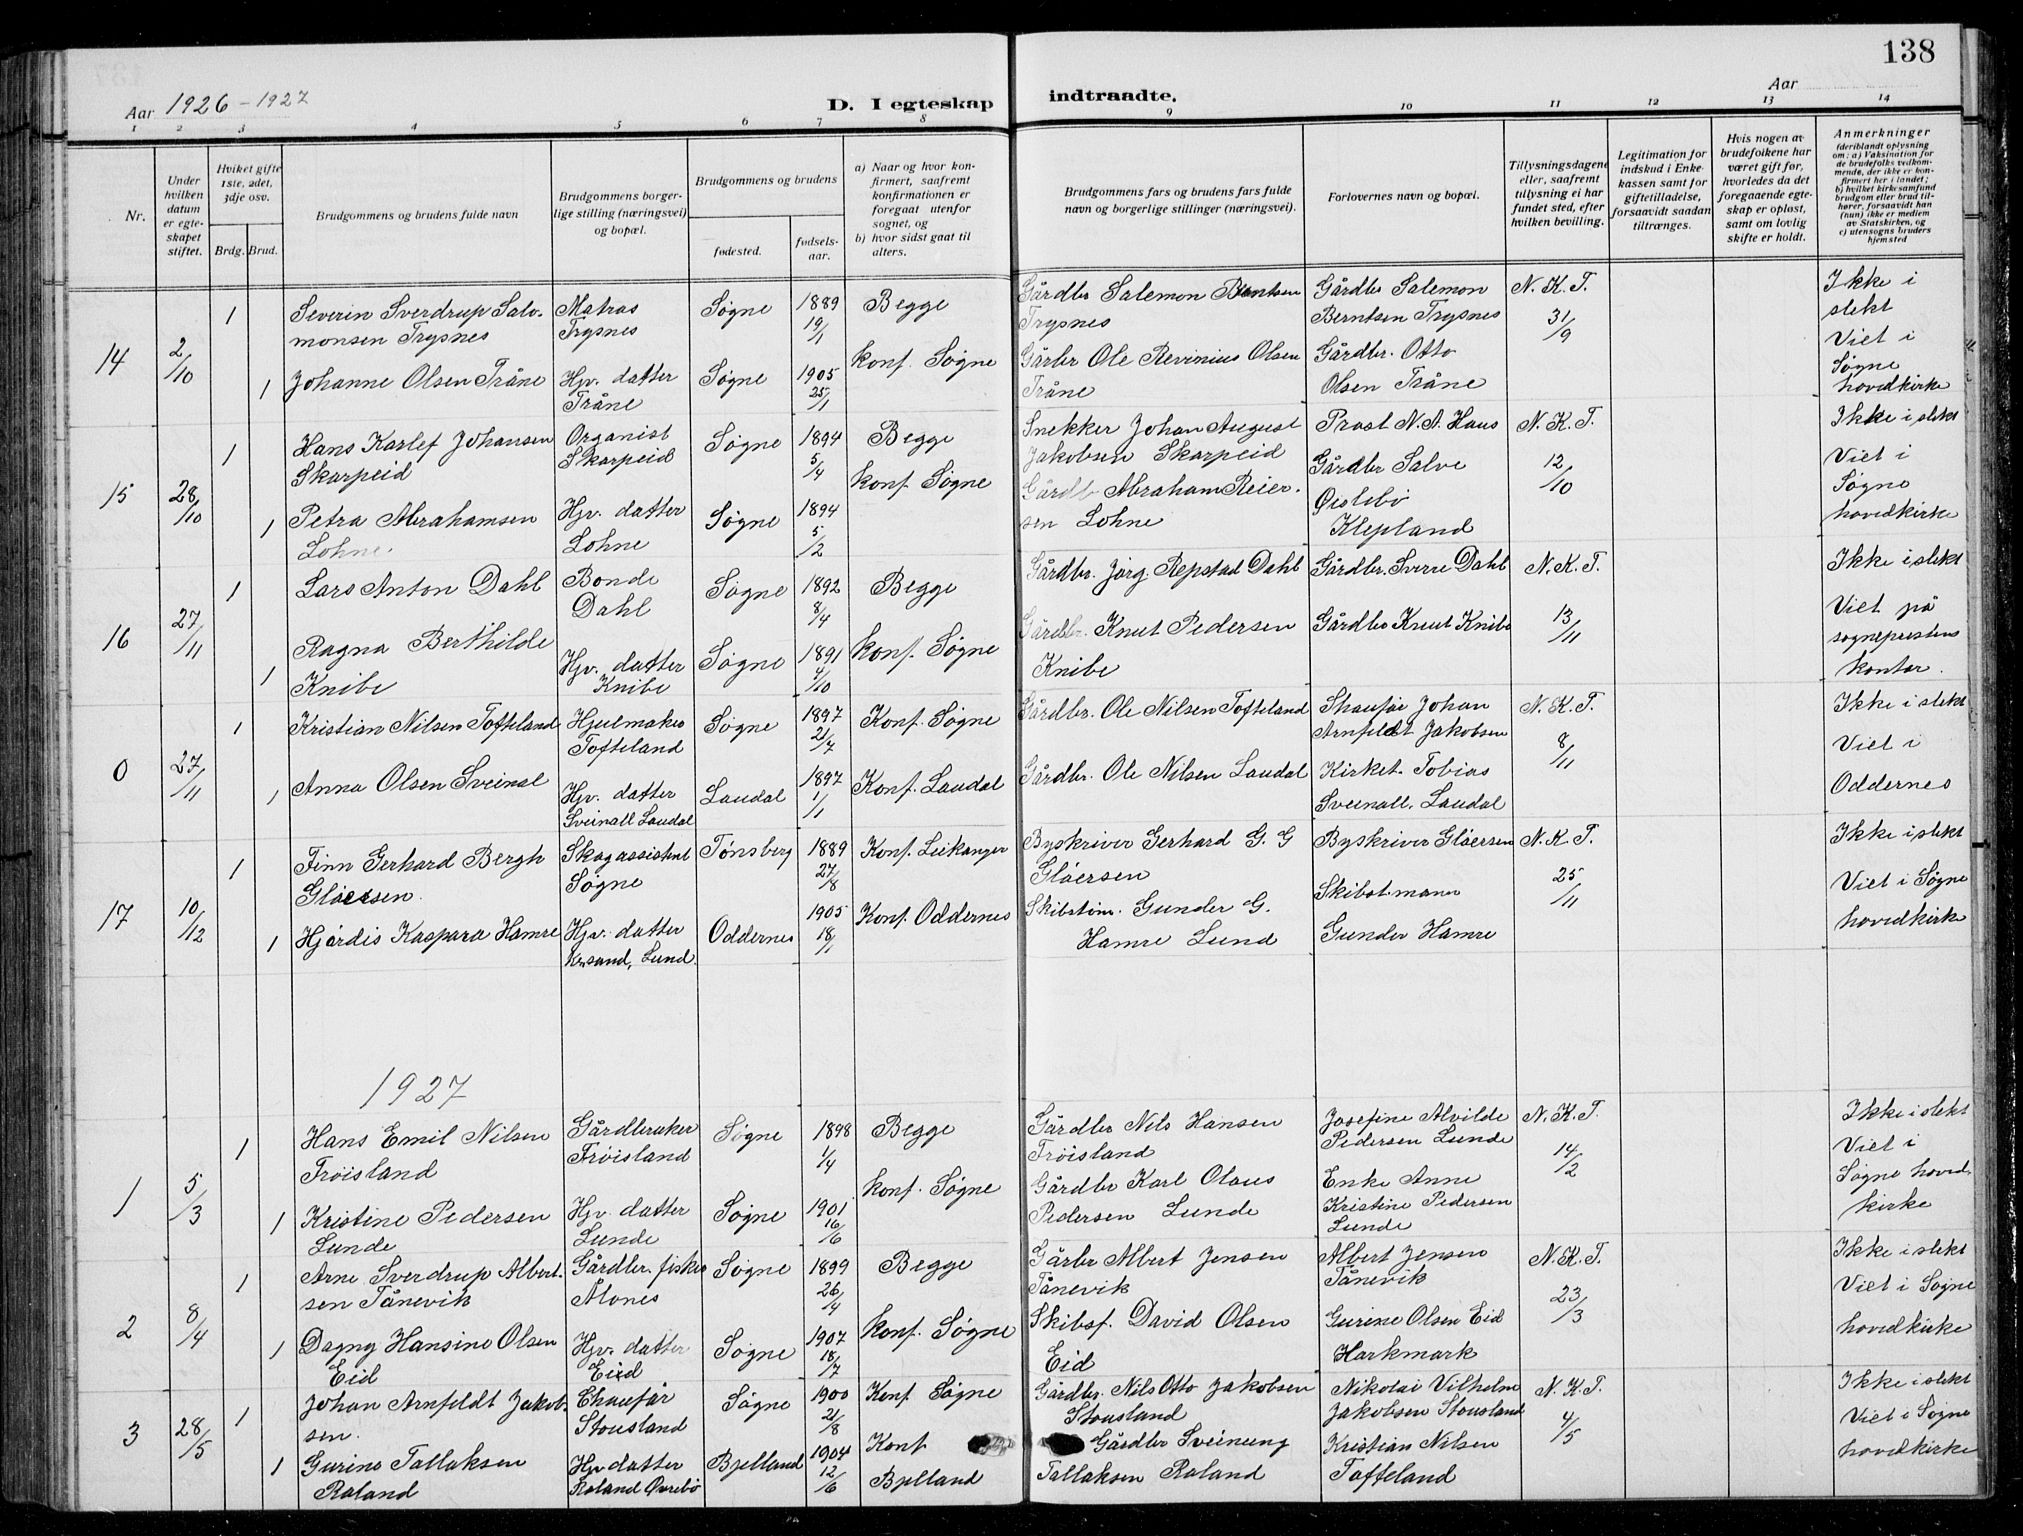 138
Aar 1926 - 1927
D. I egteskap
indtraadte.
Aar
1 2 3 4 5 6 7 8 9 10 11 12 13 14
Nr.
Under hvilken datum er egteskapet stiftet.
Hviket gifte 1ste, 2det, 3dje osv.
Brdg. Brud.
Brudgommens og brudens fulde navn
Brudgommens borgerlige stilling (næringsvei) og bopæl.
Brudgommens og brudens
fødested.
fødselsaar.
a) Naar og hvor konfirmert, saafremt konfirmationen er foregaat utenfor sognet, og
b) hvor sidst gaat til alters.
Brudgommens fars og brudens fars fulde navn og borgerlige stillinger (næringsvei).
Forlovernes navn og bopæl.
Tillysningsdagene eller, saafremt tillysning ei har fundet sted, efter hvilken bevilling.
Legitimation for indskud i Enkekassen samt for giftetilladelse, forsaavidt saadan tiltrænges.
Hvis nogen av brudefolkene har været gift før, hvorledes da det foregaaende egteskap er opløst, samt om lovlig skifte er holdt.
Anmerkninger (deriblandt oplysning om: a) Vaksination for de brudefolks vedkommende, der ikke er konfirmert her i landet; b) hvilket kirkesamfund brudgom eller brud tilhører, forsaavidt han (hun) ikke er medlem av Statskirken, og c) utensogns bruders hjemsted
14
2/10
1
Severin Sverdrup Salomonsen Trysnes
Matros
Trysnes
Søgne
1889
19/1
Begge
konf. Søgne
Gårdbr Salemon Berntsen
Trysnes
Gårdbr Salemon
Berntsen Trysnes
N. K. T.
31/9
Ikke i
slekt
Viet i
Søgne
hovedkirke
1
Johanne Olsen Tråne
Hjv. datter
Tråne
Søgne
1905
25/1
Gårbr Ole Revinius Olsen
Tråne
Gårdbr. Otto
Olsen Tråne
15
28/10
1
Hans Karlef Johansen
Skarpeid
Organist
Skarpeid
Søgne
1894
5/4
Begge
konf. Søgne
Snekker Johan August
Jakobsen Skarpeid
Prost N. A. Haus
N. K. T.
12/10
Ikke i slekt
Viet i
Søgne
hovedkirke
1
Petra Abrahamsen
Lohne.
Hjv. datter
Lohne
Søgne
1894
5/2
Gårdb Abraham Reiersen Lohne
Gårdbr Salve
Øislebø
Klepland
16
27/11
1
Lars Anton Dahl
Bonde
Dahl
Søgne
1892
8/4
Begge
konf. Søgne
Gårdbr. Jørg. Repstad Dahl
Gårdbr. Sverre Dahl
N. K. T.
13/11
Ikke i slekt
Viet på
sogneprestens
kontor.
1
Ragna Berthilde
Knibe
Hjv. datter
Knibe
Søgne
1891
4/10
Gårdbr. Knut Pedersen
Knibe
Gårdbr Knut Knibe
0
27/11
1
Kristian Nilsen Tofteland
Hjulmaker
Tofteland
Søgne
1897
21/7
Konf. Søgne
Gårdbr. Ole Nilsen Tofteland
Skaufør Johan
Arnfeldt Jakobsen
N. K. T.
8/11
Ikke i slekt
Viet i
Oddernes
1
Anna Olsen Sveinal
Hjv. datter
Sveinall Laudal
Laudal
1897
1/1
Konf. Laudal
Gårdbr. Ole Nilsen Laudal
Kirket. Tobias
Sveinall. Laudal
17
10/12
1
Finn Gerhard Bergh
Gløersen.
Skogassistent
Søgne
Tønsberg
1889
27/8
Konf. Leikanger
Byskriver Gerhard G. G
Gløersen
Byskriver Gløersen
N. K. T.
25/11
Ikke i slekt
Viet i Søgne
hovedkirke
1
Hjørdis Kaspara Hamre
Hjv. datter
Krsand, Lund.
Oddernes
1905
18/1
Konf. Oddernes
Skibstøm. Gunder G.
Hamre Lund
Skibst.mann
Gunder Hamre
1927
1
5/3
1
Hans Emil Nilsen
Frøisland
Gårdbruker
Frøisland
Søgne
1898
1/4
Begge
konf. Søgne
Gårdbr Nils Hansen
Frøisland
Josefine Alvilde
Pedersen Lunde
N. K. T.
14/2
Ikke i slekt
Viet i
Søgne hoved
kirke
1
Kristine Pedersen
Lunde
Hjv. datter
Lunde
Søgne
1901
16/6
Gårdbr Karl Olaus
Pedersen Lunde
Enke Anne
Kristine Pedersen
Lunde
2
8/4
1
Arne Sverdrup Albertsen Tånevik
Gårdbr. fisker
Ålones
Søgne
1899
26/4
Begge
konf. Søgne
Gårbr Albert Jensen
Tånevik
Albert Jensen
Tånevik
N. K. T.
23/3
Ikke i slekt
Viet i Søgne
hovedkirke
1
Dagny Hansine Olsen
Eid
Hjv. datter
Eid
Søgne
1907
18/7
Skibsf. David Olsen
Eid
Gurine Olsen Eid
Harkmark
3
28/5
1
Johan Arnfeldt Jakobsen.
Chaufør
Stousland
Søgne
1900
21/8
Konf Søgne
Gårdbr. Nils Otto Jakobsen
Stousland
Nikolai Vilhelm
Jakobsen Stousland
N. K. T.
4/5
Ikke i slekt
Viet i Søgne
hovedkirke
1
Gurine Tallaksen
Roland
Hjv datter
Roland Øvrebø
Bjelland
1904
12/6
Konf
Bjelland
Gårdbr Sveinung
Tallaksen Roland
Kristian Nilsen
Tofteland